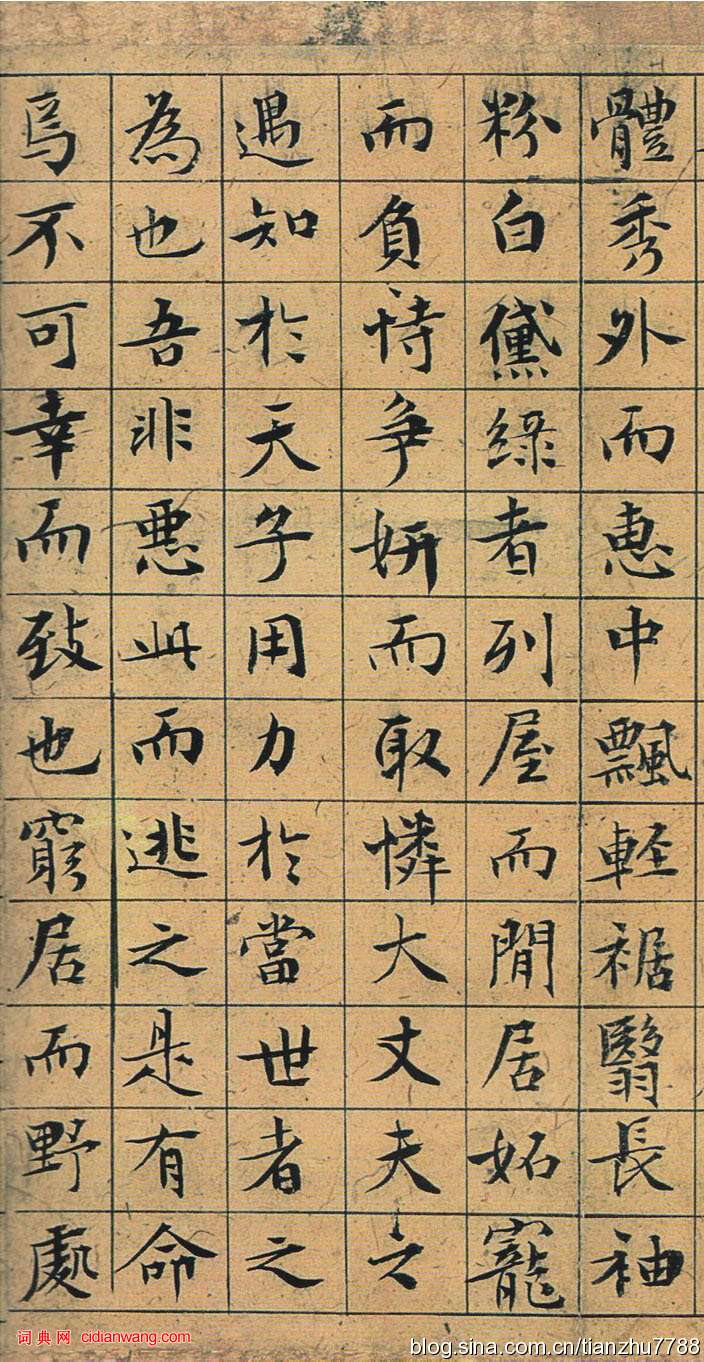 體秀外而惠中飄輕裾翳長袖
粉白黛綠者列屋而閒居妬寵
而負恃爭妍而取憐大丈夫之
遇知於天子用力於當世者之
為也吾非惡此而逃之是有命
焉不可幸而致也窮居而野處
词典网 cidianwang.com
blog.sina.com.cn/tianzhu7788